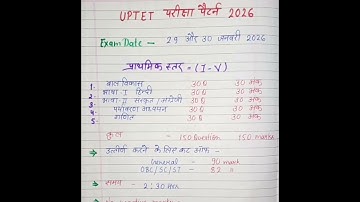 UPTET परीक्षा पैटर्न 2026
Exam Date - 29 और 30 जनवरी 2026
प्राथमिक स्तर = (I-V)
1. बाल विकास 30 Q 30 अंक
2. भाषा-I हिन्दी 30 Q 30 अंक
3. भाषा-II संस्कृत/अंग्रेजी 30 Q 30 अंक
4. पर्यावरण अध्ययन 30 Q 30 अंक
5. गणित 30 Q 30 अंक
कुल - 150 Question 150 marks
→ उत्तीर्ण करने के लिए कट ऑफ -
General - 90 mark
OBC/SC/ST - 82 "
→ समय -
- 2:30 Hrs